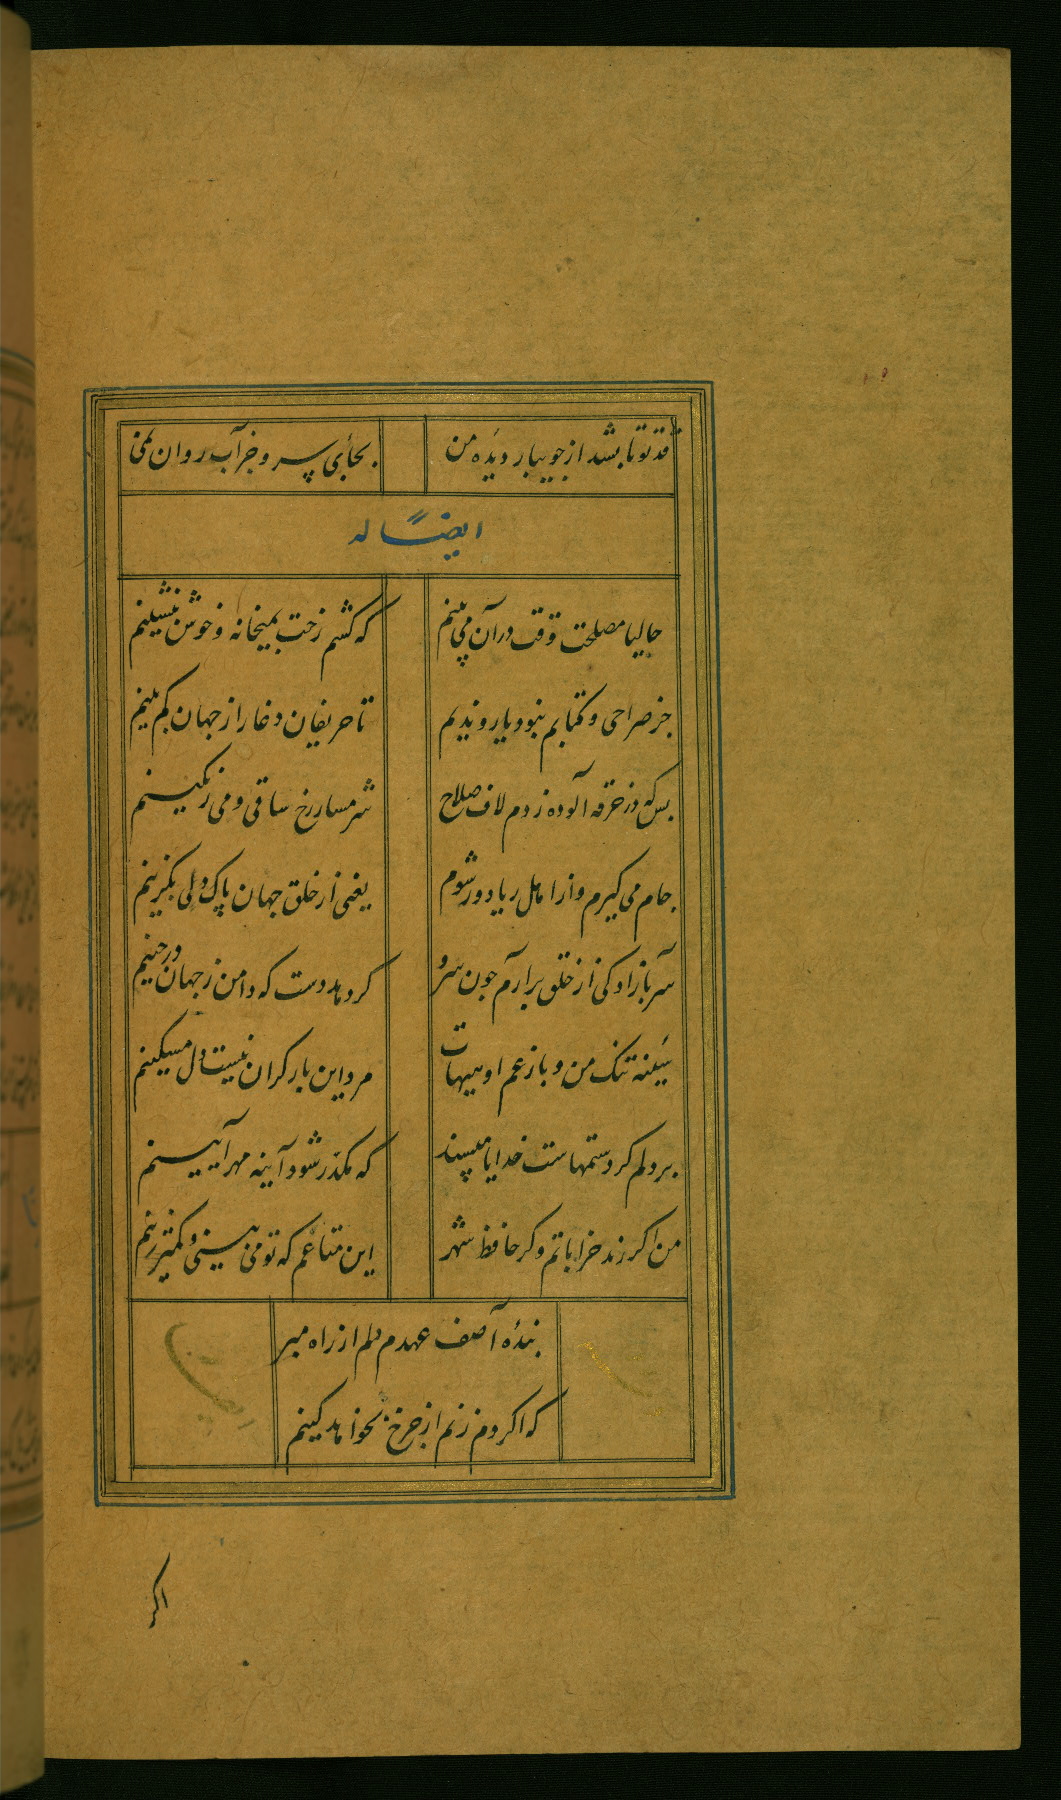 قد تو تا بشد از جویبار دیده من بجای سرو جز آب روان نمی
ایضًا له
حالیا مصلحت وقت در آن می بینم که کشم رخت بمیخانه و خوش بنشینم
جز صراحی و کتابم نبود یار و ندیم تا حریفان دغا را ز جهان کم بینم
بس که در خرقه آلوده زدم لاف صلاح شرمسار رخ ساقی و می رنکینم
جام می کیرم و از اهل ریا دور شوم یعنی از خلق جهان پاک دلی بکزینم
سر بازادکی از خلق برارم چون سرو کر دهد دست که دامن ز جهان در چینم
سینه تنک من و بار غم او هیهات مرد این بار کران نیست دل مسکینم
بر دلم کرد ستمهاست خدایا مپسند که مکدر شود آیینه مهر آیینم
من اکر رند خراباتم و کر حافظ شهر این متاعم که تو می بینی و کمتر زینم
بنده آصف عهدم دلم از راه مبر
که اکر دم زنم از چرخ بخواهد کینم
اکر